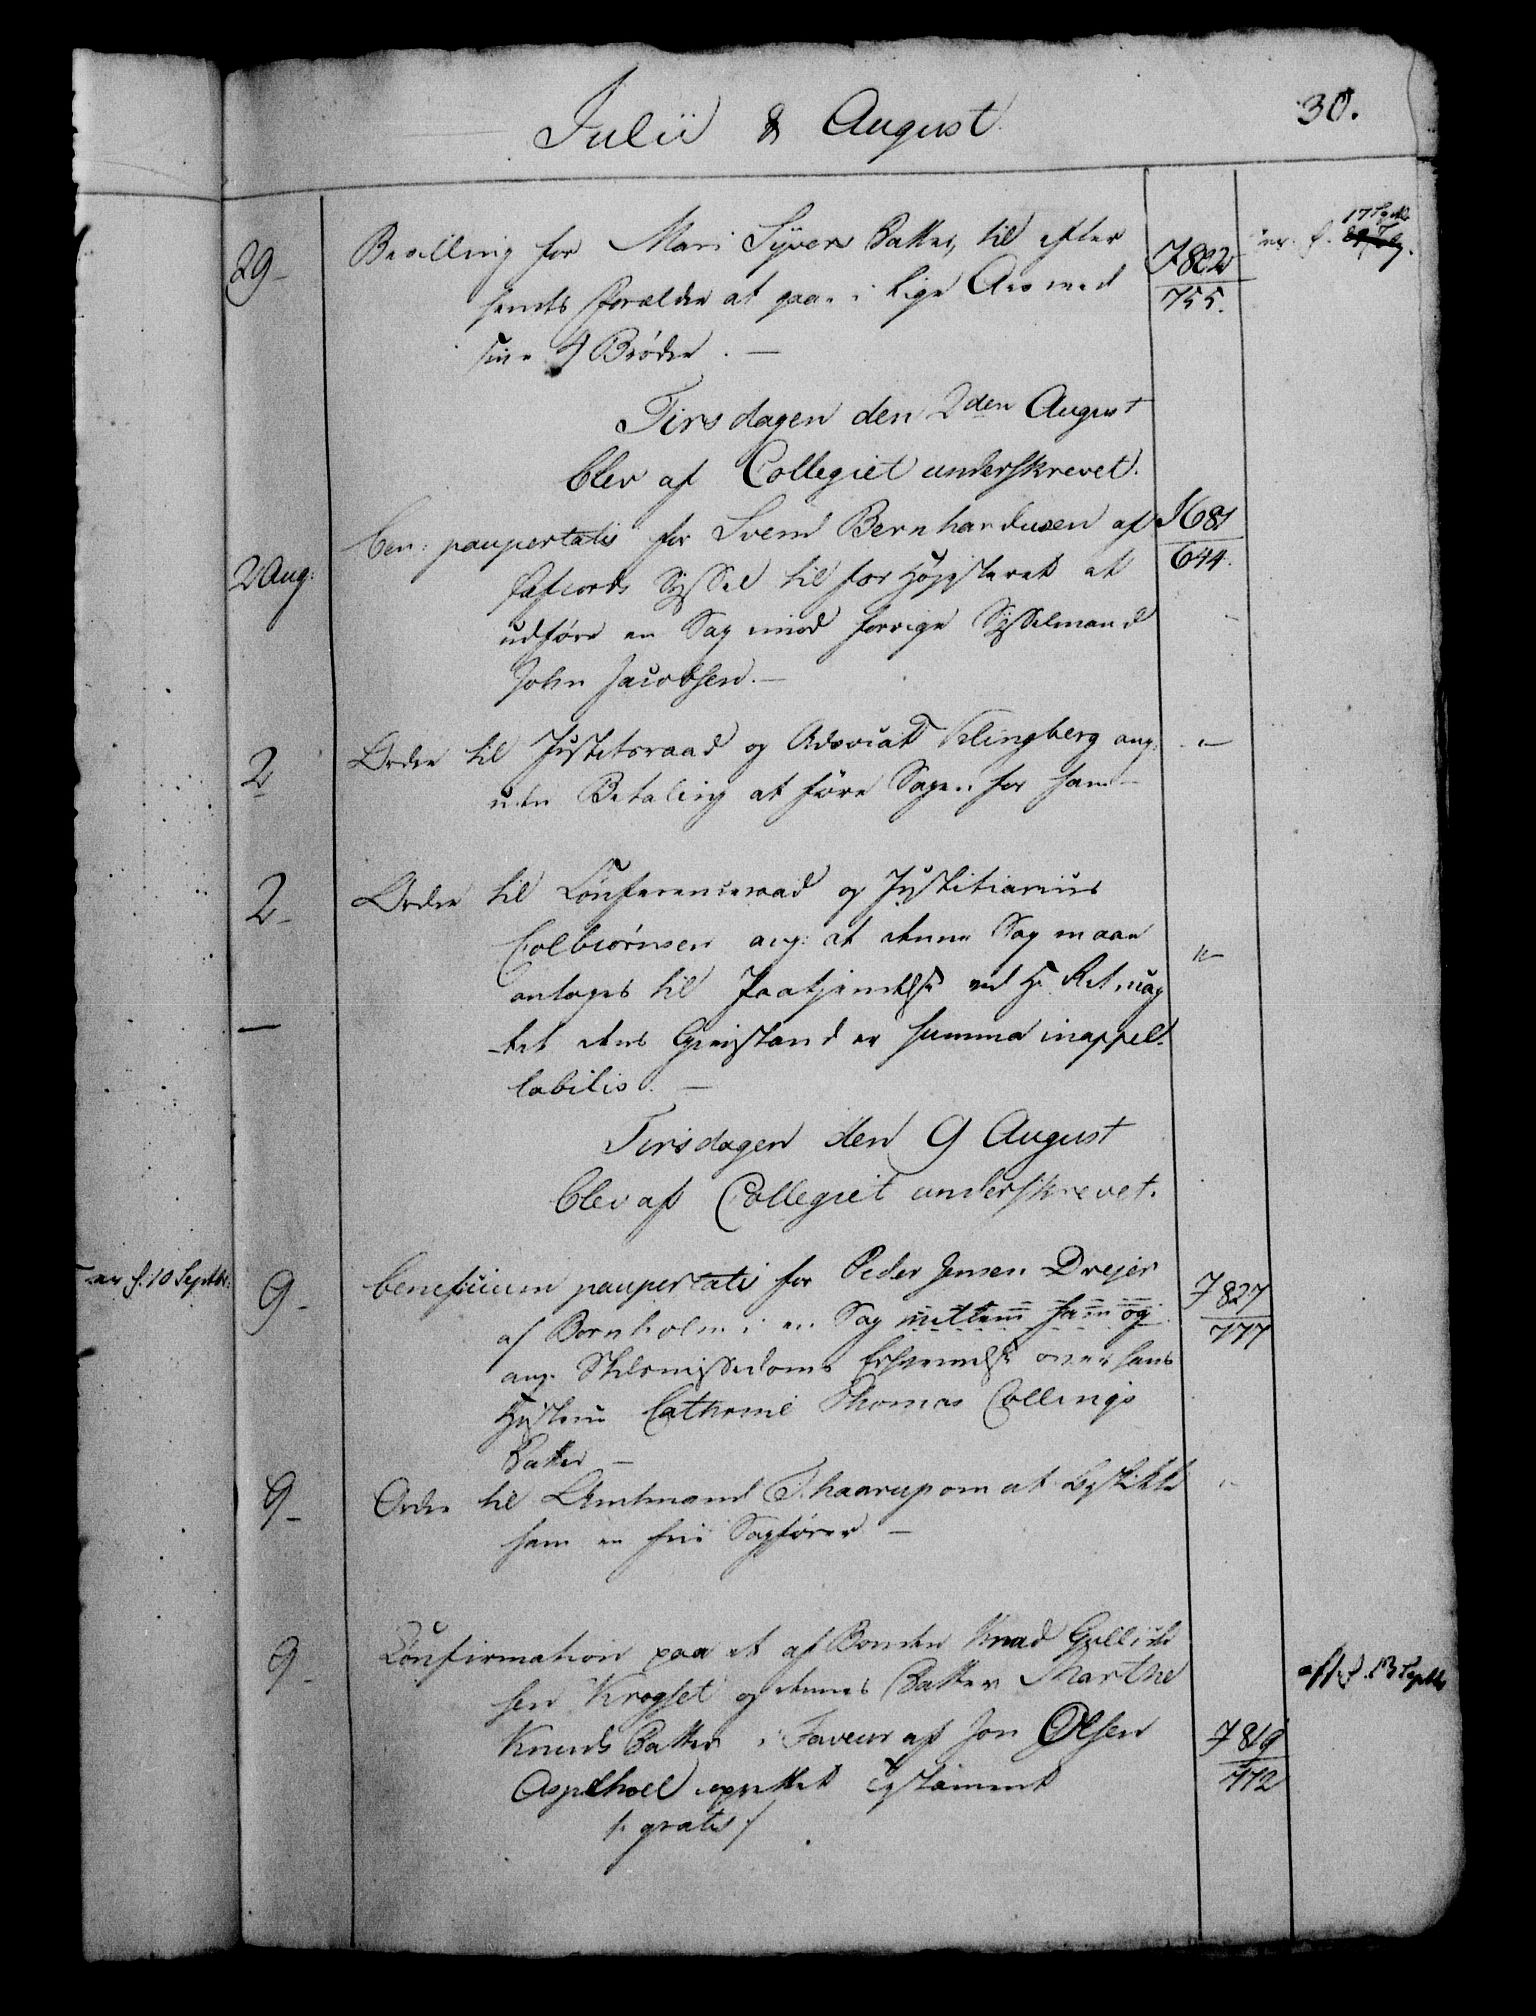 Julii & August
30.
29 - Bevilling for Mari Siver Datter, til efter
hendes Forældre at gaae i lige Arv med
sine 4 Brødre. —
J 802
755.
17 Septbr
Tirsdagen den 2den August
blev af Collegiet underskrevet.
2 Aug: ben: paupertatis for Svend Bernhardusen af
Syssel til for Høyesteret at
udføre en Sag imod forrige Sysselmand
John Jacobsen. —
J 681
644.
2 Ordre til Justitsraad og Advocat Klingberg ang:
uden Betaling at føre Sagen for ham — "—
2 - Ordre til Conferenceraad og Justitiarius
Colbiørnsen ang: at denne Sag maae
antages til Paakjendelse ved H. Ret, uag
tet dens Gienstand er summa inappel-
labilis. — "—
Tirsdagen den 9 August
blev af Collegiet underskrevet.
f. 10 Septbr:
9 - beneficium paupertatis for Peder Jensen Drejer
af Bornholm i en Sag mellem ham og
ang. Skilsmissedoms Erhvervelse over hans
Hustrue Cathrine Thomas Collings
Datter —
J 827
777
9 - Ordre til Amtmand Thaarup om at beskikke
ham en frie Sagfører — "-
9 - Confirmation paa et af Bonden Knud Gullich
sen Krogset og dennes Datter Marthe
Knuds Datter i Faveur af Jon Olsen
Aspelhoel oprettet Testament
/: gratis :/
J 819
772
aff. d. 13 Septbr